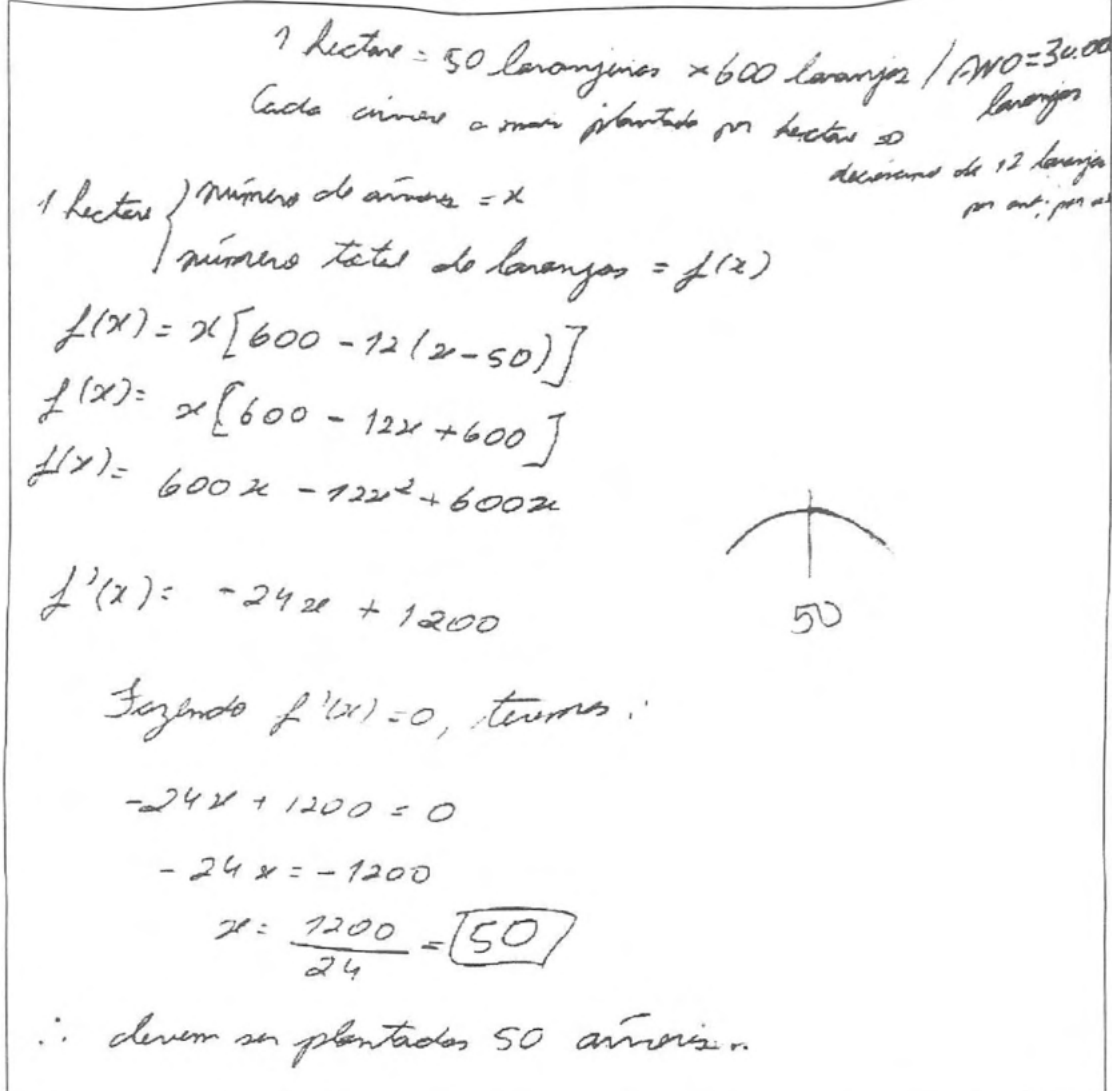 1 hectare = 50 laranjeiras × 600 laranjas / ANO = 30.00
laranjas
Cada árvore a mais plantada por hectare ⇒
decréscimo de 12 laranjas
por ant. por
1 hectare { número de árvores = x
número total de laranjas = f(x)
f(x) = x[600 - 12(x-50)]
f(x) = x[600 - 12x + 600]
f(x) = 600x - 12x² + 600x
f'(x) = -24x + 1200
50
Fazendo f'(x) = 0, teremos:
-24x + 1200 = 0
-24x = -1200
x = 1200/24 = 50
∴ devem ser plantadas 50 árvores.